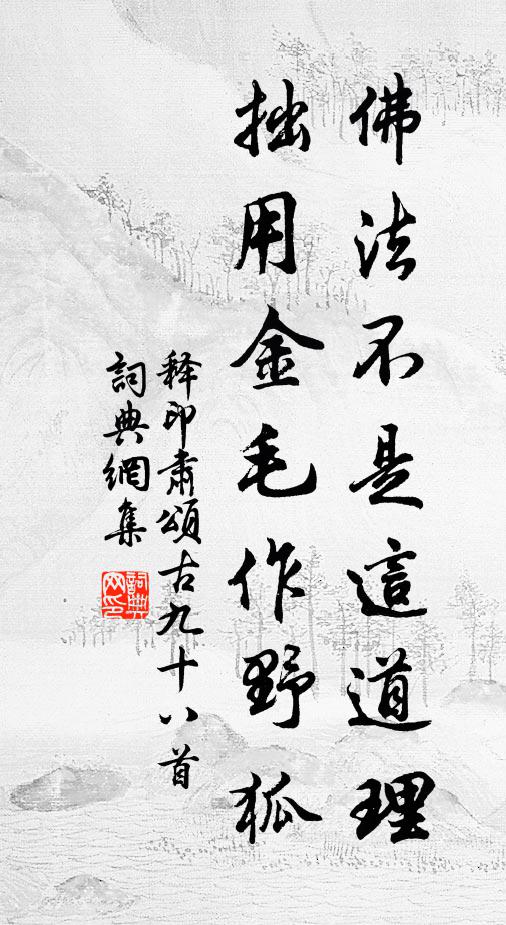 佛法不是這道理
拙用金毛作野狐
释印肃頌古九十八首
詞典網集
詞典网印